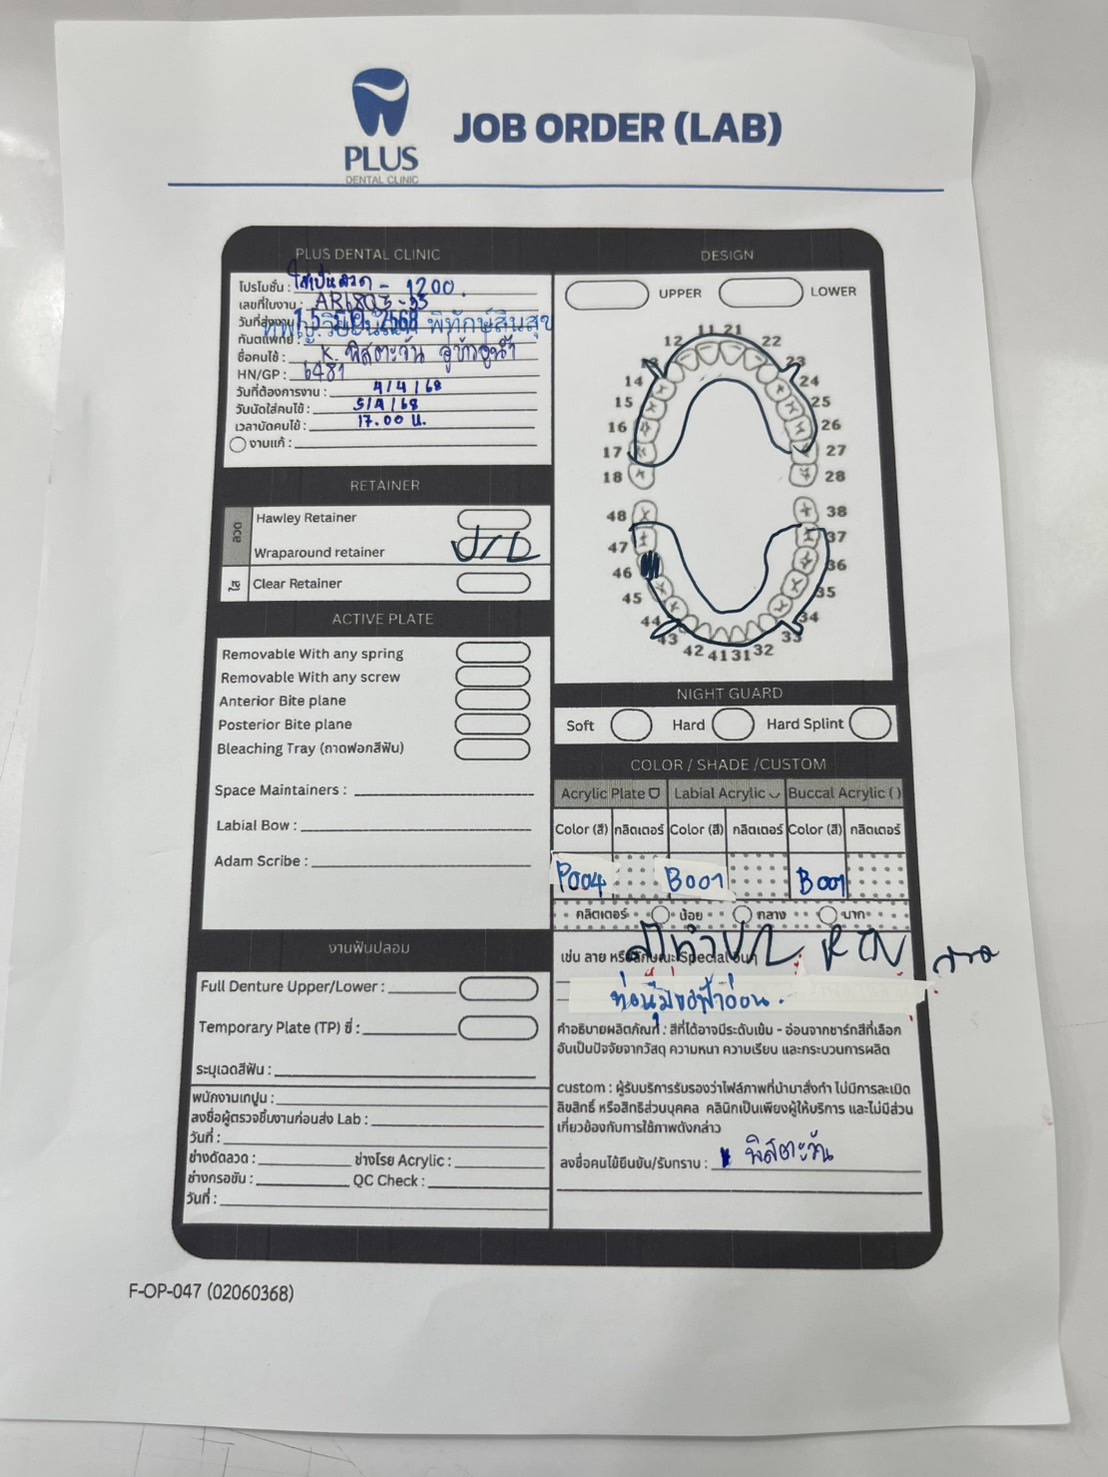 PLUS
DENTAL CLINIC
JOB ORDER (LAB)
PLUS DENTAL CLINIC
โปรโมชั่น : - 1200.
เลขที่ใบงาน : AR6803-33
วันที่ส่งงาน 2568
ทันตแพทย์ : พิทักษ์สินสุข
ชื่อคนไข้ : K.
HN/GP : 6481
วันที่ต้องการงาน : 4/4/68
วันนัดใส่คนไข้ : 5/4/68
เวลานัดคนไข้ : 17.00 น.
งานแก้ :
RETAINER
Hawley Retainer
Wraparound retainer U/L
Clear Retainer
ลวด
ใส
ACTIVE PLATE
Removable With any spring
Removable With any screw
Anterior Bite plane
Posterior Bite plane
Bleaching Tray (ถาดฟอกสีฟัน)
Space Maintainers :
Labial Bow :
Adam Scribe :
งานฟันปลอม
Full Denture Upper/Lower :
Temporary Plate (TP) ซี่ :
ระบุเฉดสีฟัน :
พนักงานเทปูน :
ลงชื่อผู้ตรวจชิ้นงานก่อนส่ง Lab :
วันที่ :
ช่างดัดลวด : ช่างโรย Acrylic :
ช่างกรอขัด : QC Check :
วันที่ :
DESIGN
UPPER LOWER
11 21
12 22
13 23
14 24
15 25
16 26
17 27
18 28
48 38
47 37
46 36
45 35
44 34
43 33
42 41 31 32
NIGHT GUARD
Soft Hard Hard Splint
COLOR / SHADE /CUSTOM
Acrylic Plate Labial Acrylic Buccal Acrylic ( )
Color (สี) กลิตเตอร์ Color (สี) กลิตเตอร์ Color (สี) กลิตเตอร์
P004 B001 B001
กลิตเตอร์ น้อย กลาง มาก
เช่น ลาย หรือลักษณะ Special อื่นๆ
U/L RTN ลวด
คำอธิบายผลิตภัณฑ์ : สีที่ได้อาจมีระดับเข้ม - อ่อนจากชาร์กสีที่เลือก
อันเป็นปัจจัยจากวัสดุ ความหนา ความเรียบ และกระบวนการผลิต
custom : ผู้รับบริการรับรองว่าไฟล์ภาพที่นำมาสั่งทำ ไม่มีการละเมิด
ลิขสิทธิ์ หรือสิทธิส่วนบุคคล คลินิกเป็นเพียงผู้ให้บริการ และไม่มีส่วน
เกี่ยวข้องกับการใช้ภาพดังกล่าว
ลงชื่อคนไข้ยืนยัน/รับทราบ :
F-OP-047 (02060368)